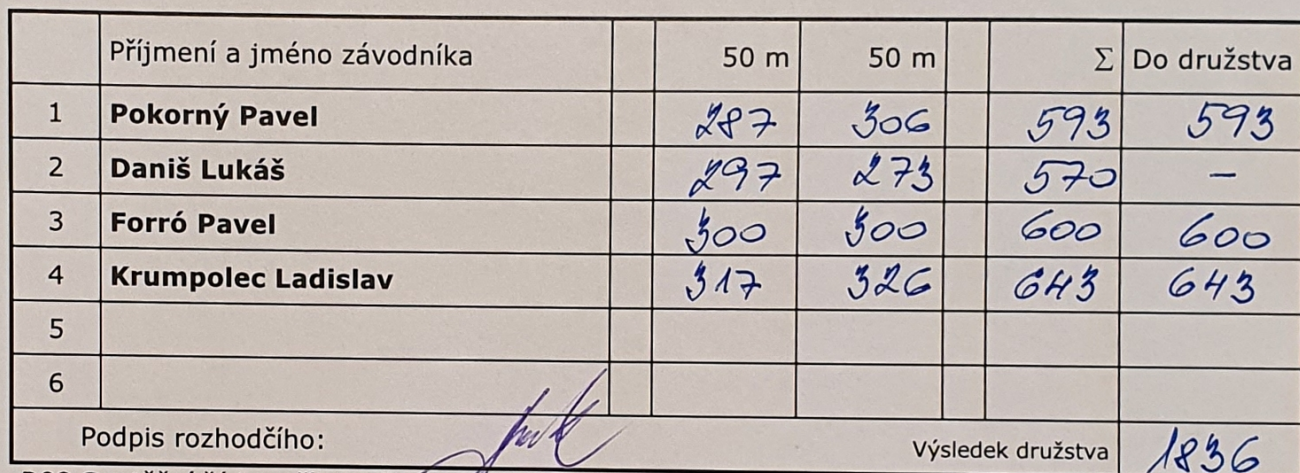 Příjmení a jméno závodníka 50 m 50 m Σ Do družstva
1 Pokorný Pavel 287 306 593 593
2 Daniš Lukáš 297 273 570 –
3 Forró Pavel 300 300 600 600
4 Krumpolec Ladislav 317 326 643 643
5
6
Podpis rozhodčího: Výsledek družstva 1836